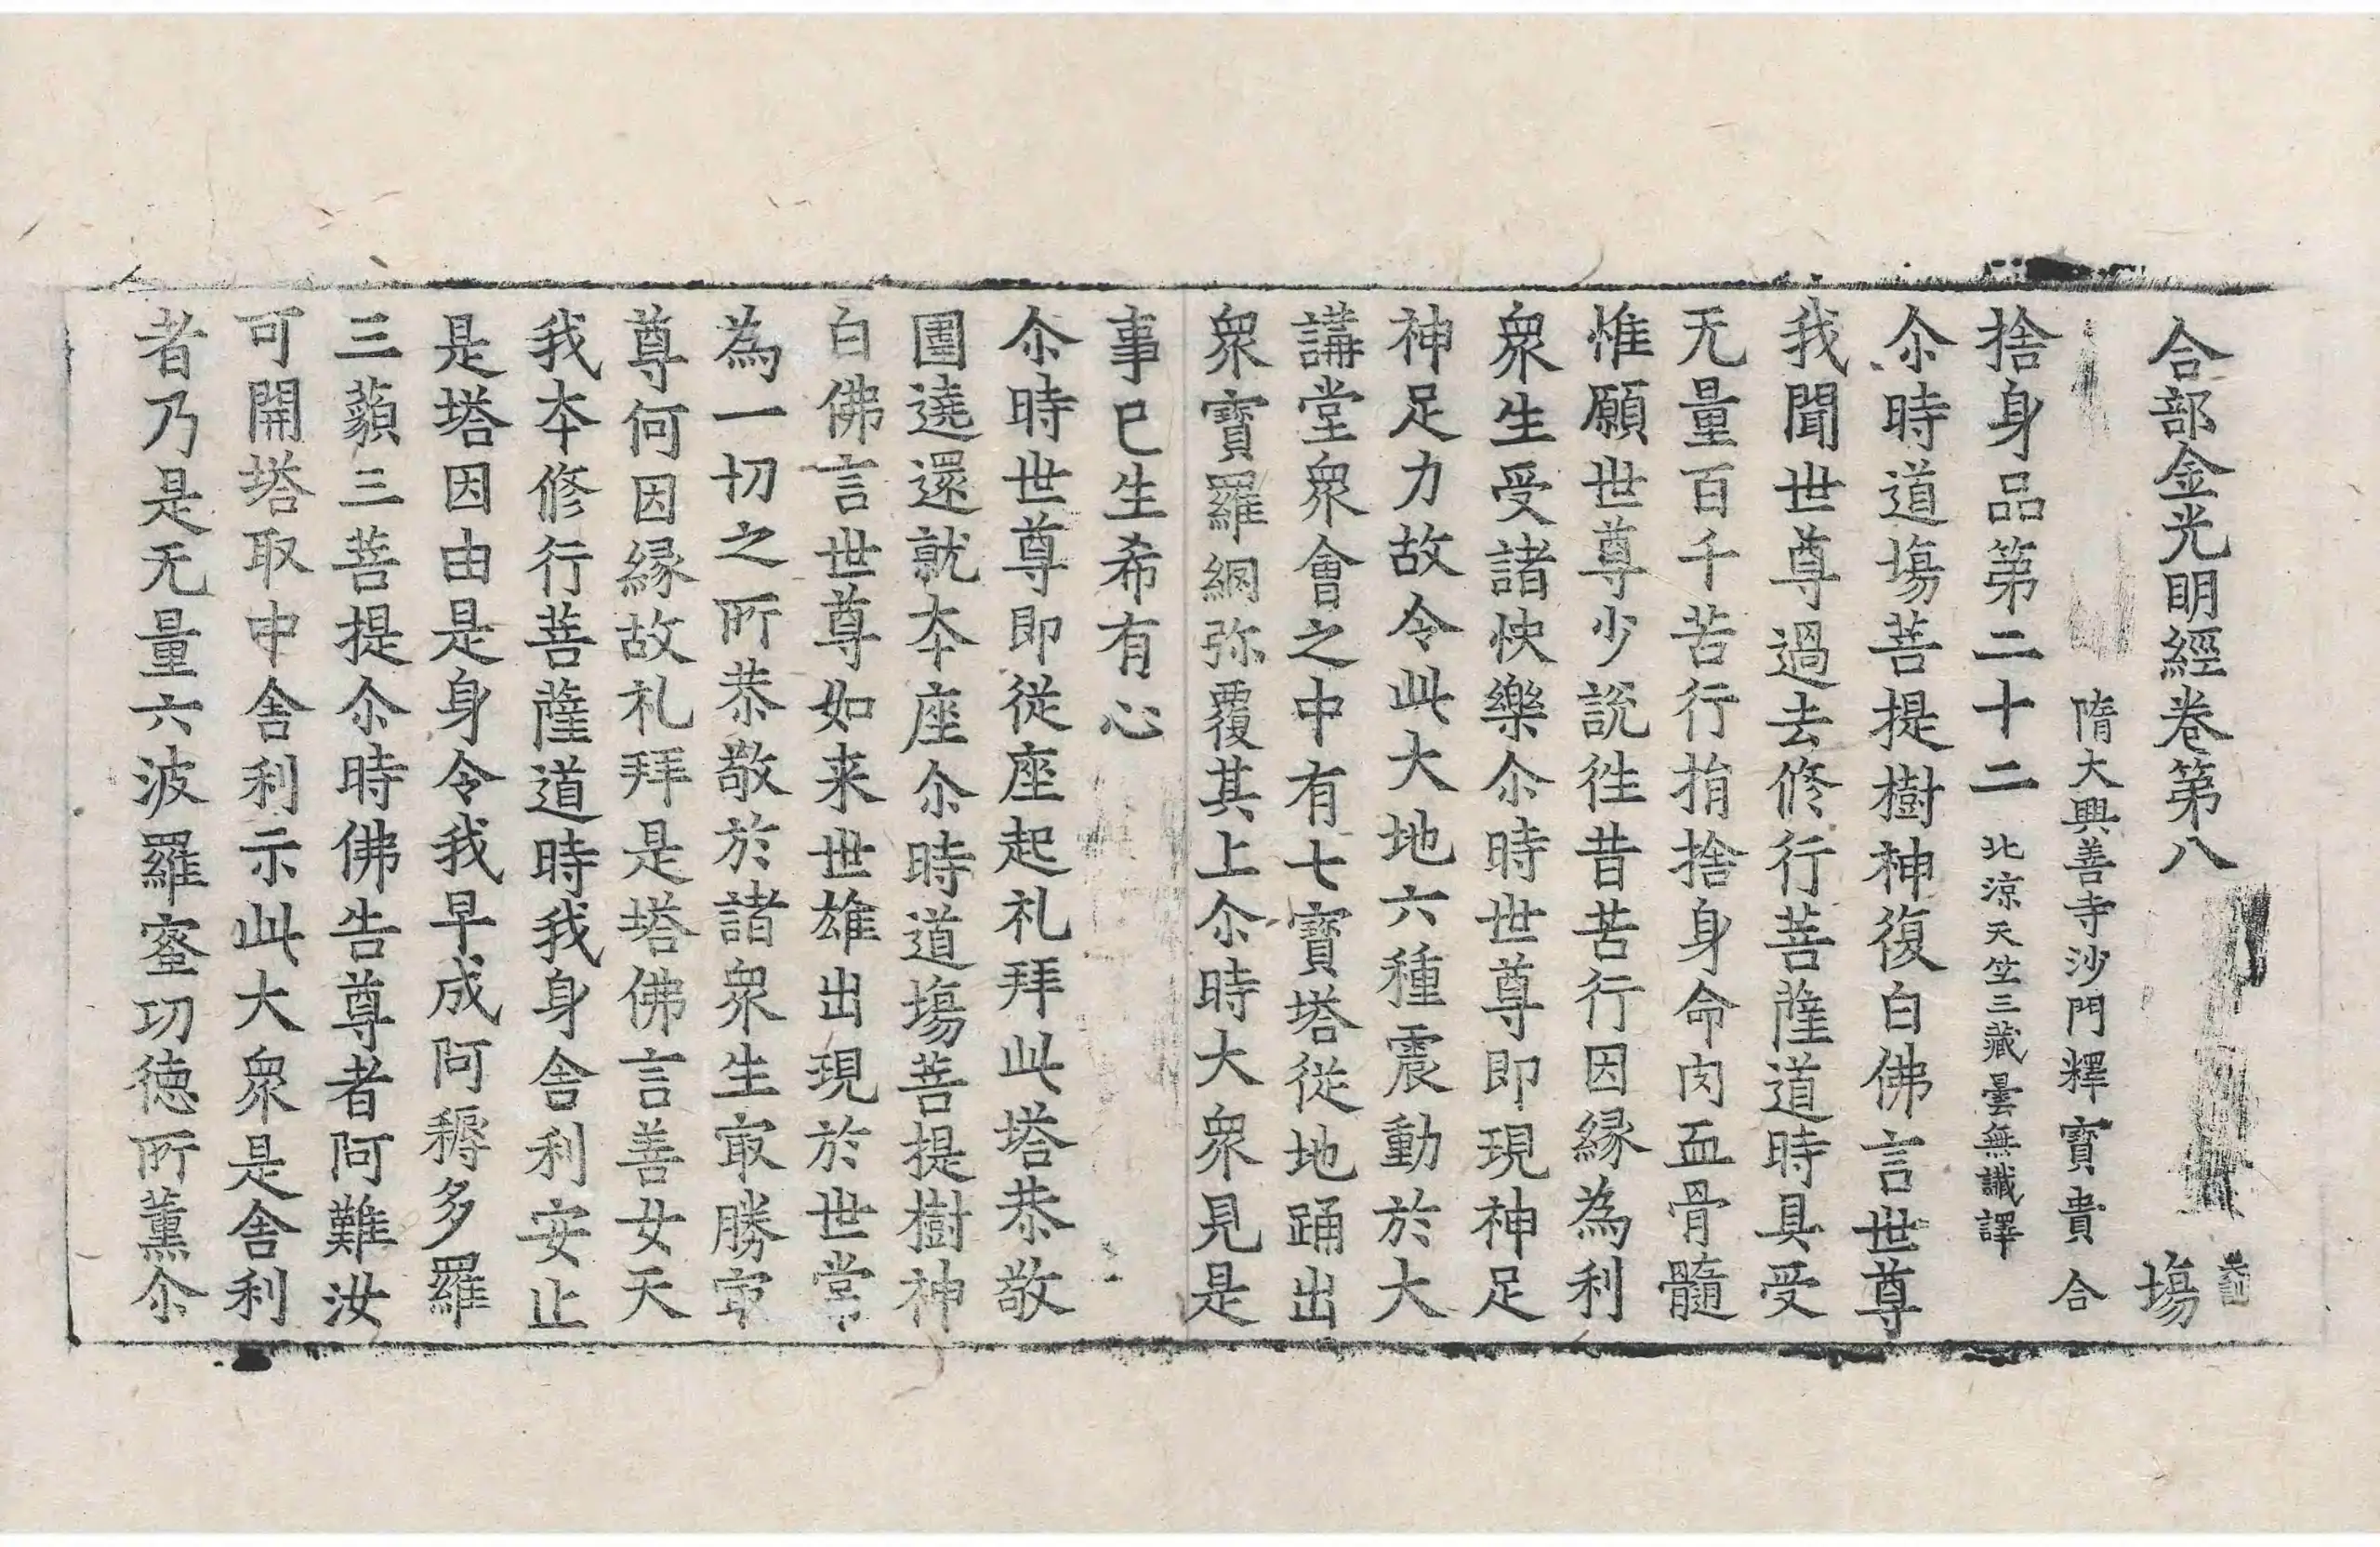 合部金光明經卷第八 場
隋大興善寺沙門釋寶貴 合
捨身品第二十二 北涼天竺三藏曇無讖譯
尒時道場菩提樹神復白佛言世尊
我聞世尊過去修行菩薩道時具受
无量百千苦行捐捨身命肉血骨髓
惟願世尊少說往昔苦行因緣為利
衆生受諸快樂尒時世尊即現神足
神足力故令此大地六種震動於大
講堂衆會之中有七寶塔從地踊出
衆寶羅網弥覆其上尒時大衆見是
事已生希有心
尒時世尊即從座起礼拜此塔恭敬
圍遶還就本座尒時道場菩提樹神
白佛言世尊如来世雄出現於世常
為一切之所恭敬於諸衆生冣勝冣
尊何因縁故礼拜是塔佛言善女天
我本修行菩薩道時我身舍利安止
是塔因由是身令我早成阿耨多羅
三藐三菩提尒時佛告尊者阿難汝
可開塔取中舍利示此大衆是舍利
者乃是无量六波羅蜜功德所薰尒